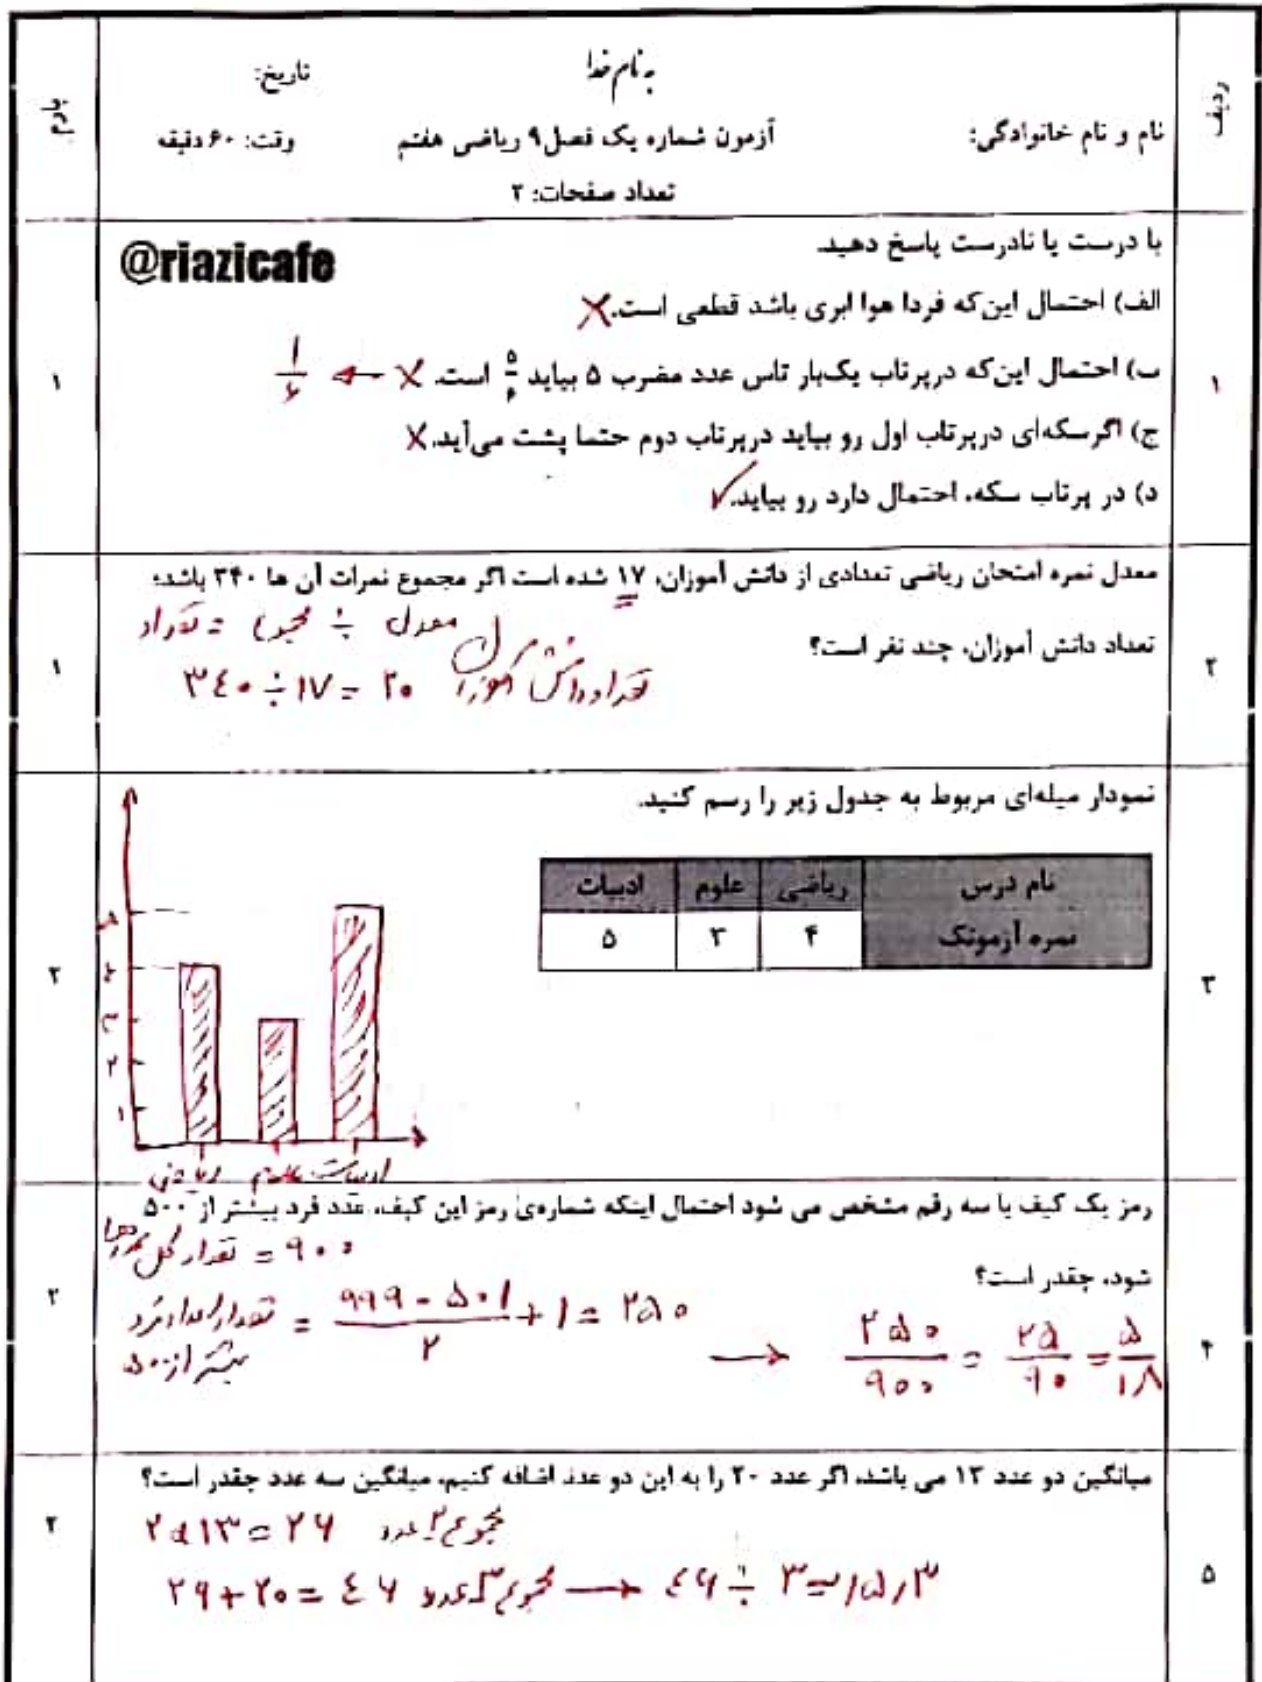 ردیف
بارم
به نام خدا
نام و نام خانوادگی:
تاریخ:
آزمون شماره یک فصل ۹ ریاضی هفتم
وقت: ۶۰ دقیقه
تعداد صفحات: ۲
@riazicafe
۱
با درست یا نادرست پاسخ دهید.
الف) احتمال این‌که فردا هوا ابری باشد قطعی است. ✗
ب) احتمال این‌که درپرتاب یک‌بار تاس عدد مضرب ۵ بیاید ۵/۶ است. ✗ ← ۱/۶
ج) اگرسکه‌ای درپرتاب اول رو بیاید درپرتاب دوم حتما پشت می‌آید. ✗
د) در پرتاب سکه، احتمال دارد رو بیاید. ✓
۱
۲
معدل نمره امتحان ریاضی تعدادی از دانش آموزان، ۱۷ شده است اگر مجموع نمرات آن ها ۳۴۰ باشد؛
تعداد دانش آموزان، چند نفر است؟
تعداد = مجموع ÷ معدل
۳۴۰ ÷ ۱۷ = ۲۰ تعداد دانش آموزان
۱
۳
نمودار میله‌ای مربوط به جدول زیر را رسم کنید.
نام درس ریاضی علوم ادبیات
نمره آزمونک ۴ ۳ ۵
۵
۴
۳
۲
۱
ریاضی علوم ادبیات
۲
۴
رمز یک کیف با سه رقم مشخص می شود احتمال اینکه شماره‌ی رمز این کیف، عدد فرد بیشتر از ۵۰۰
شود، چقدر است؟
تعداد کل عددها = ۹۰۰
تعداد اعداد فرد بیشتر از ۵۰۰ = (۹۹۹ - ۵۰۱)/۲ + ۱ = ۲۵۰
→ ۲۵۰/۹۰۰ = ۲۵/۹۰ = ۵/۱۸
۲
۵
میانگین دو عدد ۱۳ می باشد، اگر عدد ۲۰ را به این دو عدد اضافه کنیم، میانگین سه عدد چقدر است؟
۲ × ۱۳ = ۲۶ مجموع ۲ عدد
۲۶ + ۲۰ = ۴۶ مجموع ۳ عدد → ۴۶ ÷ ۳ = ۱۵٫۳
۲